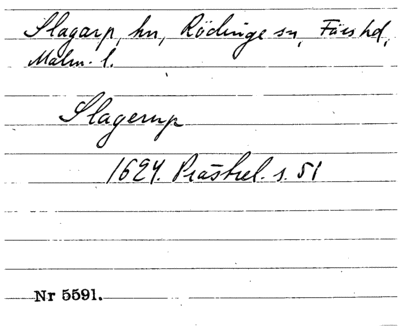 Slagarp, hn, Rödinge sn, Färs hd,
Malm. l.
Slagerup
1624. Prästrel. s. 51
Nr 5591.